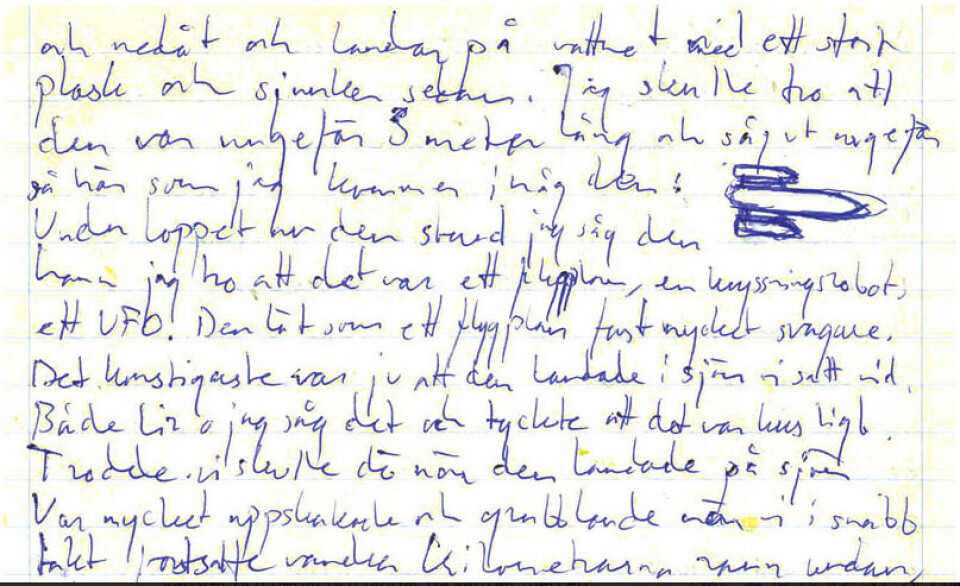 och nedåt och landar på vattnet med ett stort
plask och sjunker sedan. Jag skulle tro att
den var ungefär 3 meter lång och såg ut ungefär
så här som jag kommer ihåg den:
Under loppet av den stund jag såg den
hann jag tro att det var ett flygplan, en kryssningsrobot,
ett UFO! Den lät som ett flygplan fast mycket svagare.
Det konstigaste var ju att den landade i sjön vi satt vid.
Både Liz o jag såg det och tyckte att det var kusligt.
Trodde vi skulle dö när den landade på sjön
Var mycket uppskakade och grubblande när vi i snabb
takt fortsatte vandra. Kilometrarna rann undan,